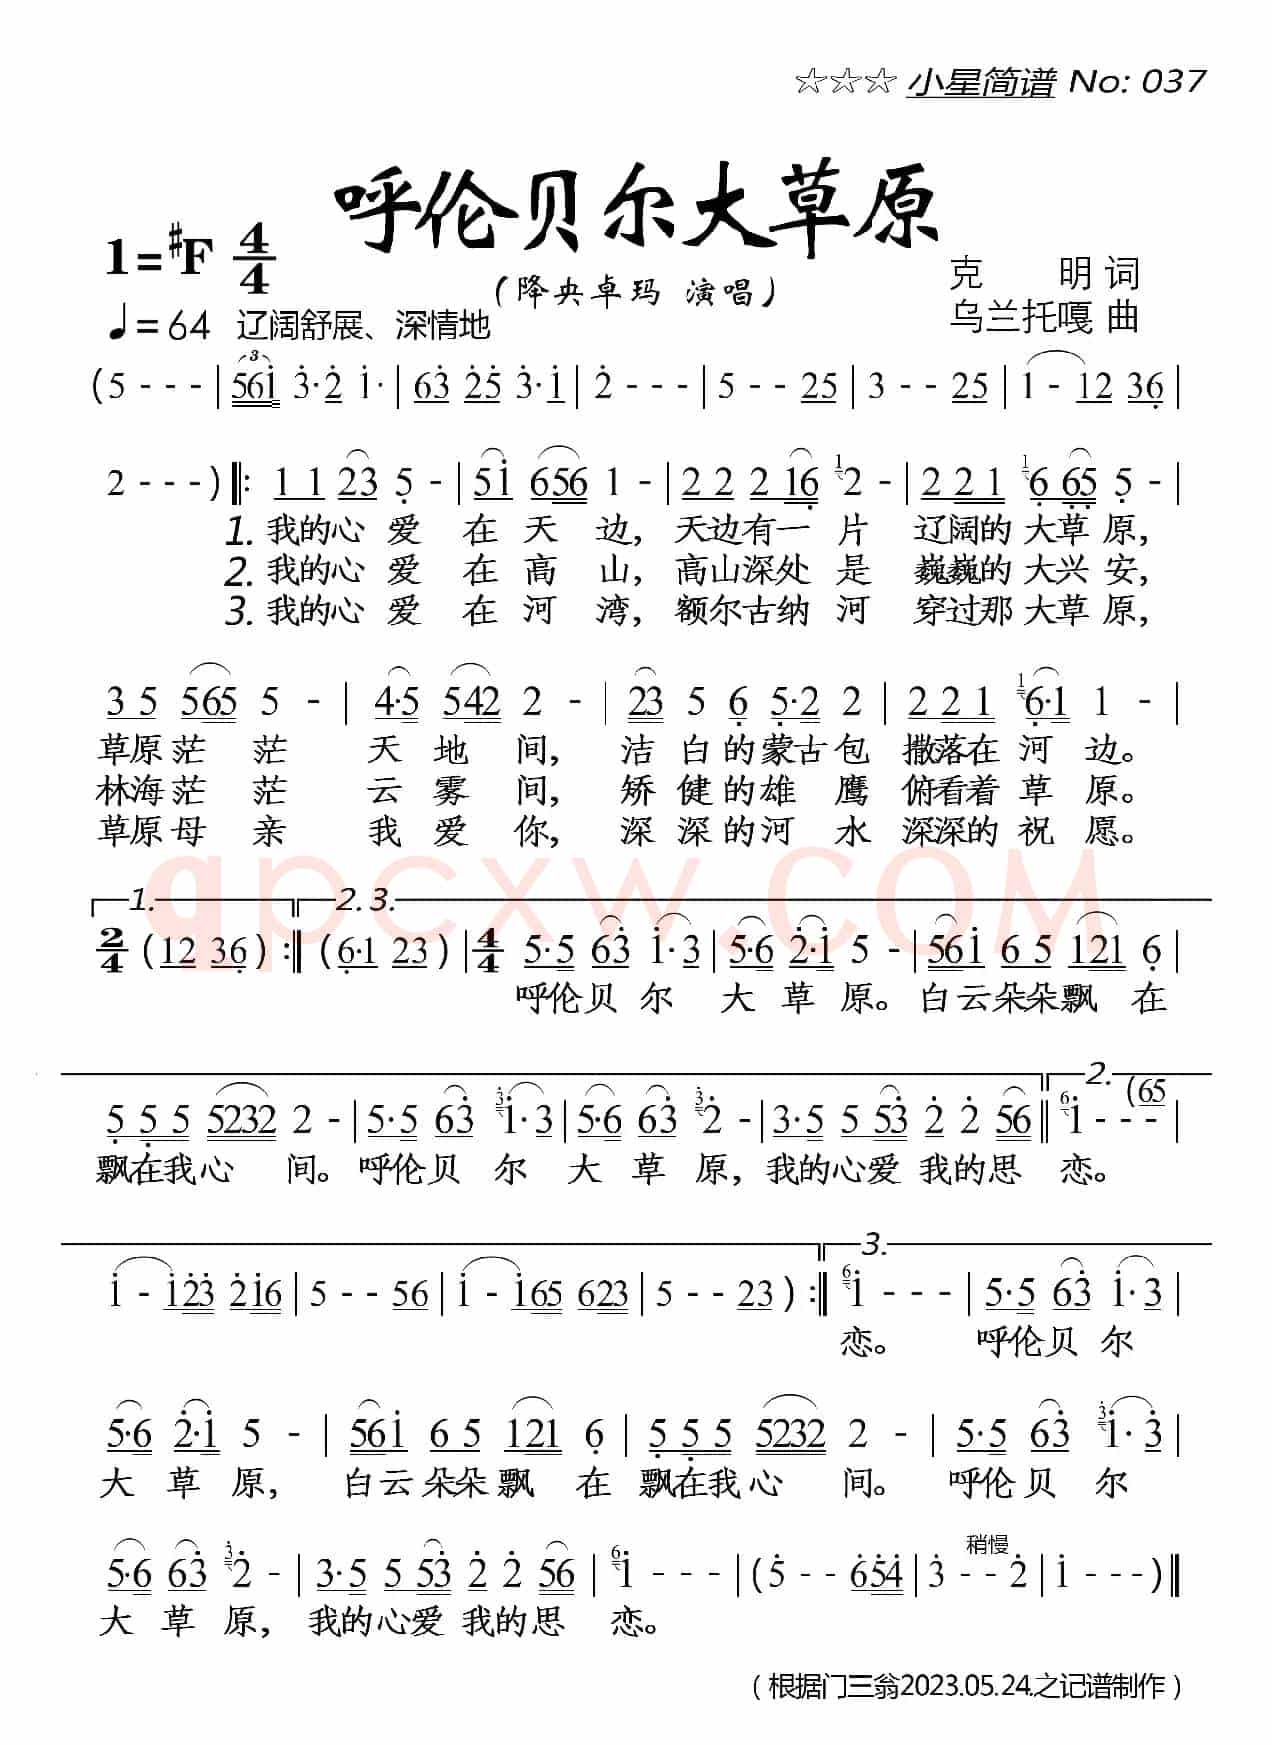 ☆☆☆ 小星简谱 No: 037
呼伦贝尔大草原
1=#F 4/4
(降央卓玛 演唱)
克 明 词
♩=64 辽阔舒展、深情地
乌兰托嘎 曲
(5 - - - | 561 3·2 1· | 63 25 3·1 | 2 - - - | 5 - - 25 | 3 - - 25 | 1 - 12 36 |
2 - - -) ‖: 1 1 23 5 - | 51 656 1 - | 2 2 2 16 1 2 - | 2 2 1 1 6 65 5 - |
1. 我的心 爱 在 天 边, 天边有一 片 辽阔的 大草 原,
2. 我的心 爱 在 高 山, 高山深处 是 巍巍的 大兴 安,
3. 我的心 爱 在 河 湾, 额尔古纳 河 穿过那 大草 原,
3 5 565 5 - | 4·5 542 2 - | 23 5 6 5·2 2 | 2 2 1 1 6·1 1 - |
草原 茫 茫 天 地 间, 洁 白 的 蒙古 包 撒落在 河 边。
林海 茫 茫 云 雾 间, 矫 健 的 雄 鹰 俯看着 草 原。
草原 母 亲 我 爱 你, 深 深 的 河 水 深深的 祝 愿。
1. 2. 3.
2/4 (12 36) :‖ (6·1 23) | 4/4 5·5 63 1·3 | 5·6 2·1 5 - | 561 6 5 121 6 |
呼伦贝 尔 大 草 原。 白云朵朵飘 在
2.
5 5 5 5232 2 - | 5·5 63 3 1·3 | 5·6 63 3 2 - | 3·5 5 53 2 2 56 ‖ 6 1 - - - (65 |
飘在我心 间。 呼伦贝 尔 大 草 原, 我的心爱 我的思 恋。
3.
1 - 123 216 | 5 - - 56 | 1 - 165 623 | 5 - - 23) :‖ 6 1 - - - | 5·5 63 1·3 |
恋。 呼伦贝 尔
5·6 2·1 5 - | 561 6 5 121 6 | 5 5 5 5232 2 - | 5·5 63 3 1·3 |
大 草 原, 白云 朵朵飘 在 飘在我心 间。 呼伦贝 尔
稍慢
5·6 63 3 2 - | 3·5 5 53 2 2 56 | 6 1 - - - | (5 - - 654 | 3 - - 2 | 1 - - -) ‖
大 草 原, 我的心爱 我的思 恋。
(根据门三翁2023.05.24.之记谱制作)
qpcxw.COM